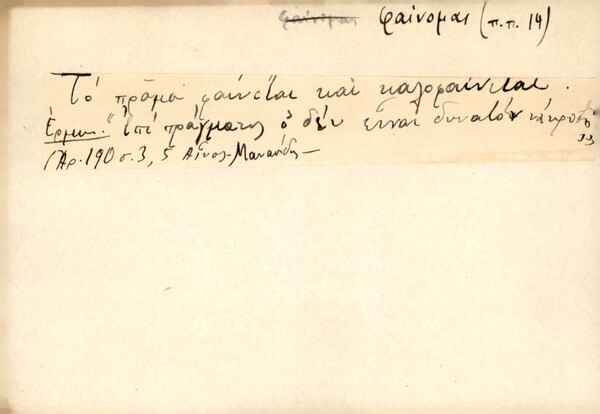 φαίνομαι φαίνομαι (π.π. 14)
Τό πρᾶμα φαίνεται καί καλοφαίνεται.
Ἑρμην. "Ἐπί πράγματος ὅ δέν εἶναι δυνατόν νά κρυ
(Ἀρ. 190 σ. 3, 5 Αἶνος-